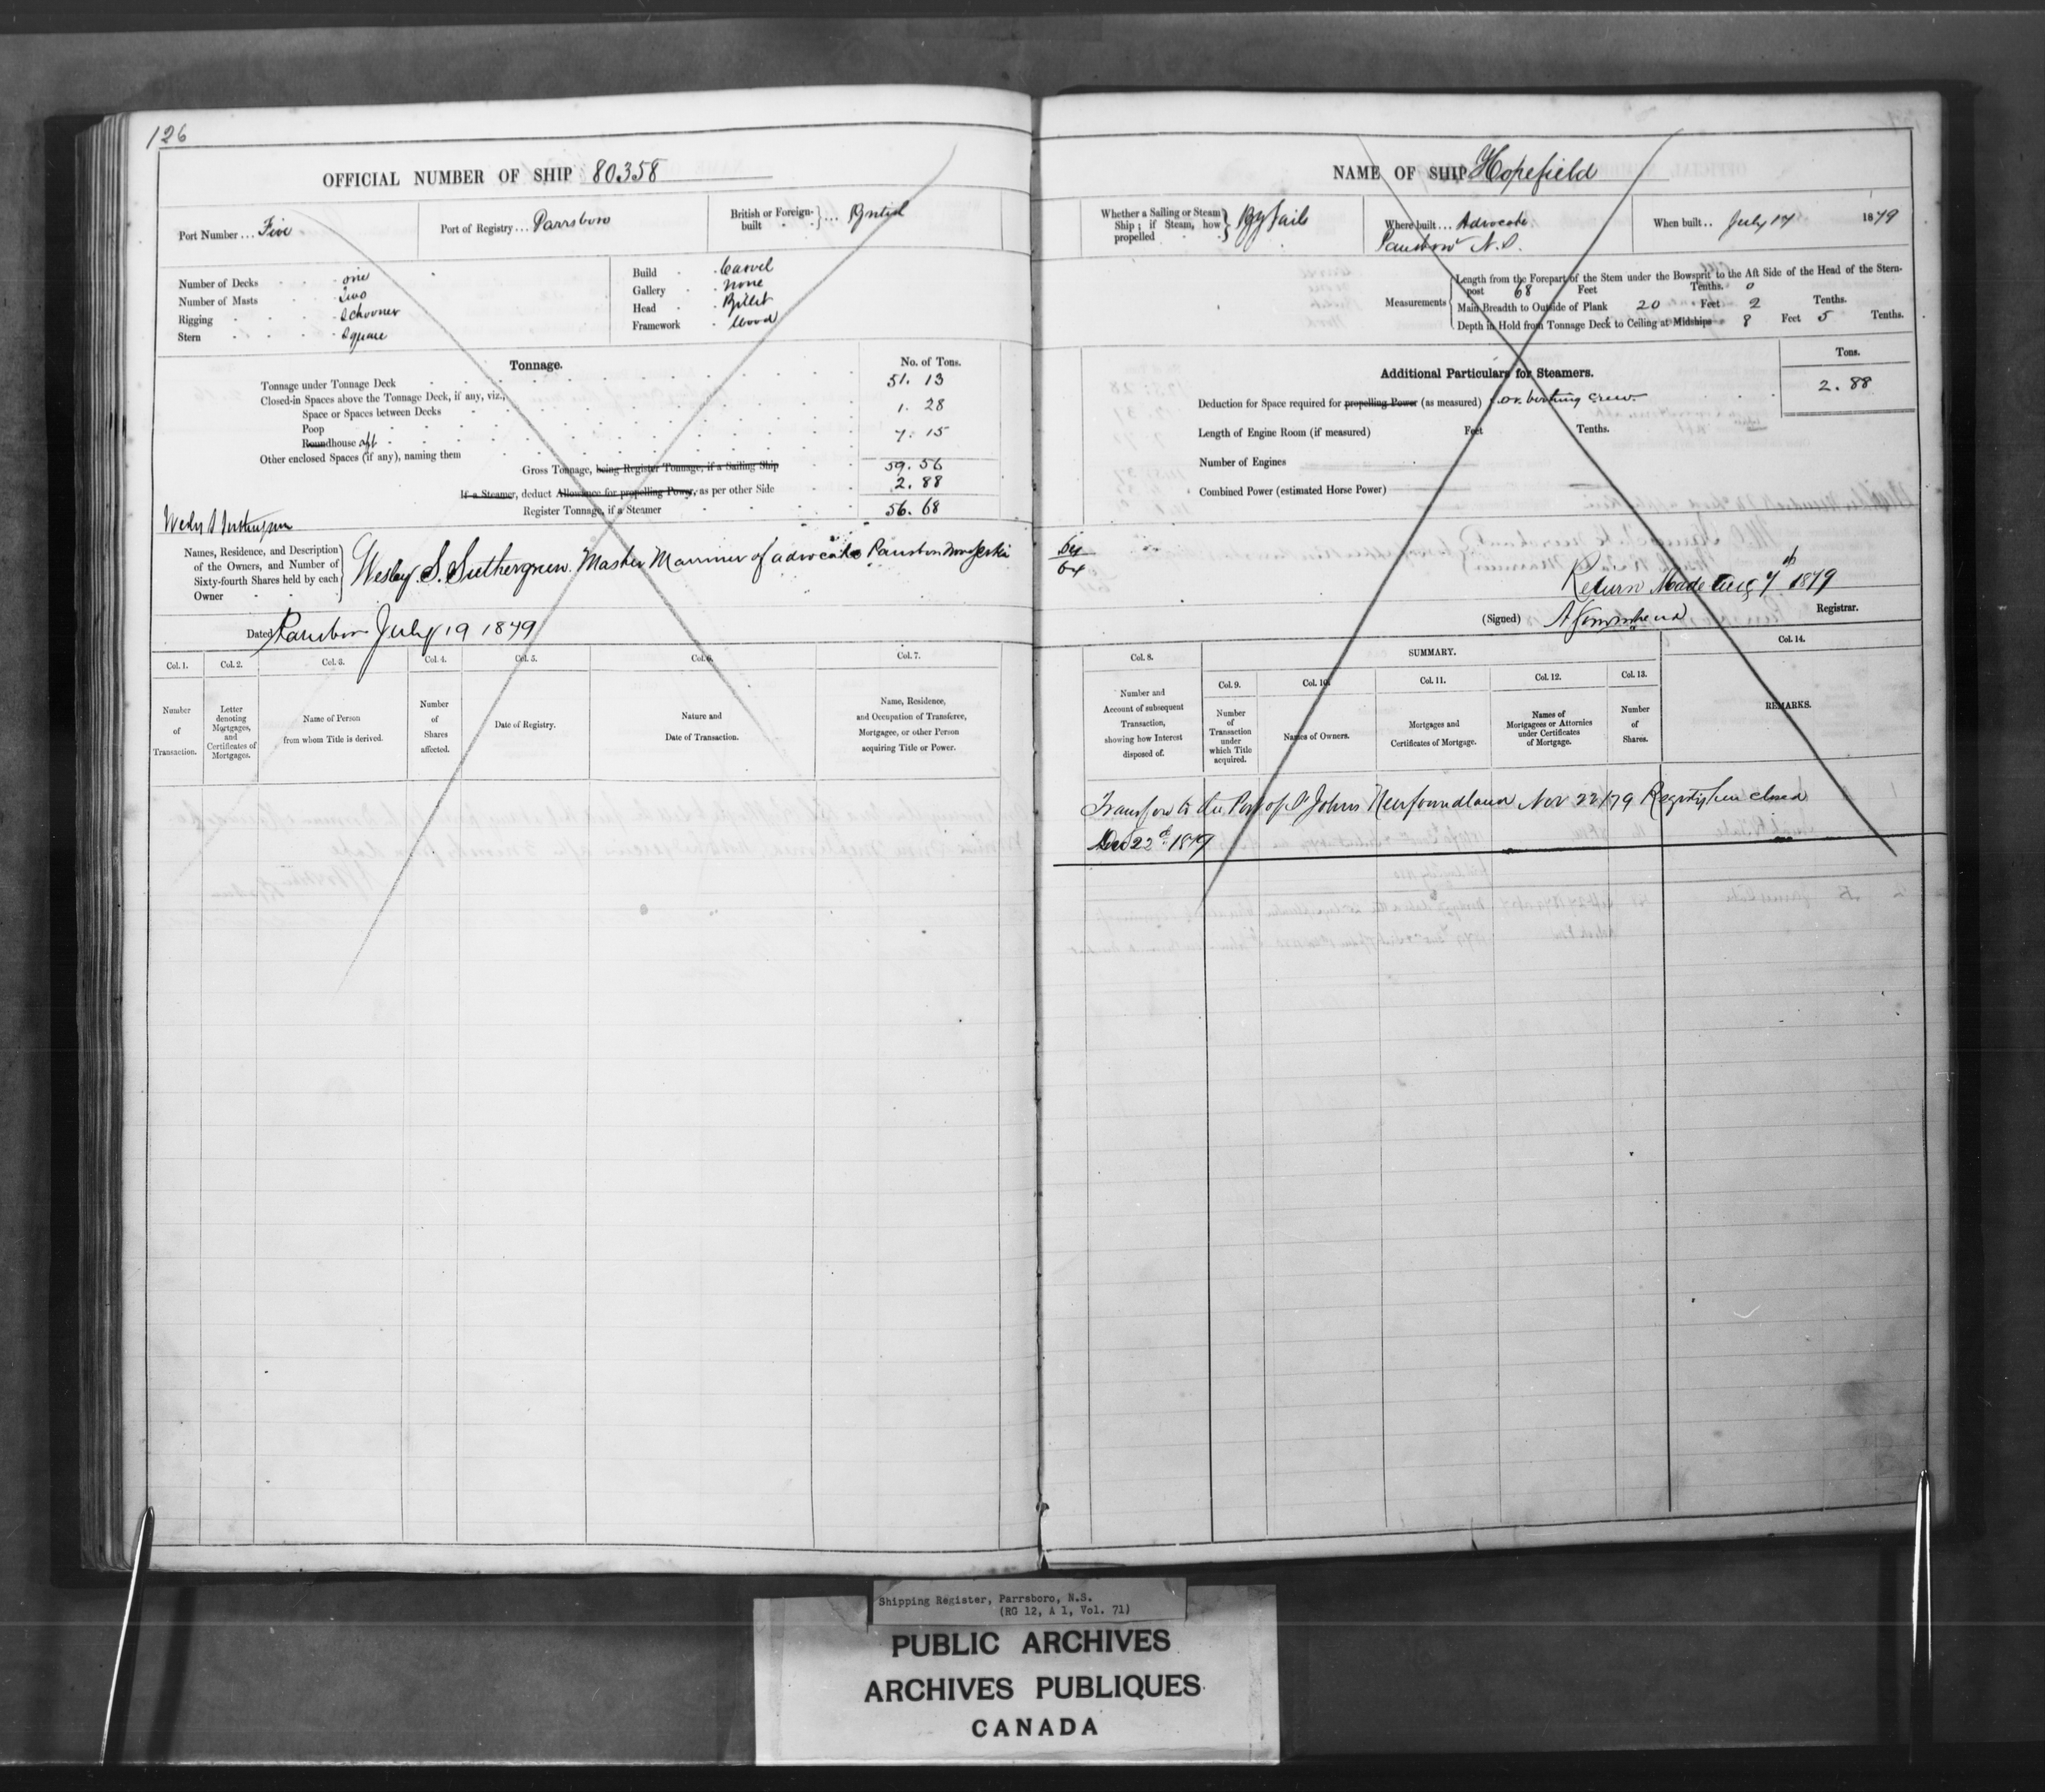 126
OFFICIAL NUMBER OF SHIP 80358
Port Number ... Five
Port of Registry ... Parrsboro
British or Foreign-built } ... British
Number of Decks one
Number of Masts Two
Rigging Schooner
Stern Square
Build Carvel
Gallery None
Head Billet
Framework Wood
Tonnage.
No. of Tons.
Tonnage under Tonnage Deck 51.13
Closed-in Spaces above the Tonnage Deck, if any, viz.,
Space or Spaces between Decks 1.28
Poop
Roundhouse aft 7.15
Other enclosed Spaces (if any), naming them
Gross Tonnage, being Register Tonnage, if a Sailing Ship 59.56
If a Steamer, deduct Allowance for propelling Power, as per other Side 2.88
Register Tonnage, if a Steamer 56.68
Names, Residence, and Description of the Owners, and Number of Sixty-fourth Shares held by each Owner
Wesley S. Suthergreen. Master Mariner of advocate Parrsboro
Dated Parrsboro July 19 1879
Col. 1.
Col. 2.
Col. 3.
Col. 4.
Col. 5.
Col. 6.
Col. 7.
Number of Transaction.
Letter denoting Mortgages, and Certificates of Mortgages.
Name of Person from whom Title is derived.
Number of Shares affected.
Date of Registry.
Nature and Date of Transaction.
Name, Residence, and Occupation of Transferee, Mortgagee, or other Person acquiring Title or Power.
NAME OF SHIP Hopefield
Whether a Sailing or Steam Ship; if Steam, how propelled } By Sails
Where built ... Advocate
Parrsboro N.S.
When built .. July 17 1879
Measurements
Length from the Forepart of the Stem under the Bowsprit to the Aft Side of the Head of the Stern-
post 68 Feet Tenths. 0
Main Breadth to Outside of Plank 20 Feet 2 Tenths.
Depth in Hold from Tonnage Deck to Ceiling at Midships 8 Feet 5 Tenths.
Additional Particulars for Steamers.
Tons.
Deduction for Space required for propelling Power (as measured) for berthing crew 2.88
Length of Engine Room (if measured) Feet Tenths.
Number of Engines
Combined Power (estimated Horse Power)
64
64
Return Made Aug 7th 1879
(Signed) Registrar.
Col. 8.
SUMMARY.
Col. 14.
Col. 9.
Col. 10.
Col. 11.
Col. 12.
Col. 13.
Number and Account of subsequent Transaction, showing how Interest disposed of.
Number of Transaction under which Title acquired.
Names of Owners.
Mortgages and Certificates of Mortgage.
Names of Mortgagees or Attornies under Certificates of Mortgage.
Number of Shares.
REMARKS.
Transfer to the Port of St Johns Newfoundland Nov 22/79 Registry here closed
Dec 22d 1879
Shipping Register, Parrsboro, N.S.
(RG 12, A 1, Vol. 71)
PUBLIC ARCHIVES
ARCHIVES PUBLIQUES
CANADA